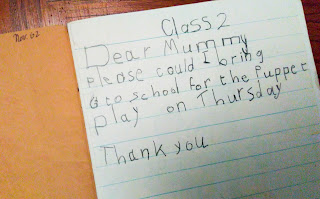 Class 2
Dear Mummy
please could I bring
to school for the Puppet
play on Thursday
Thank you